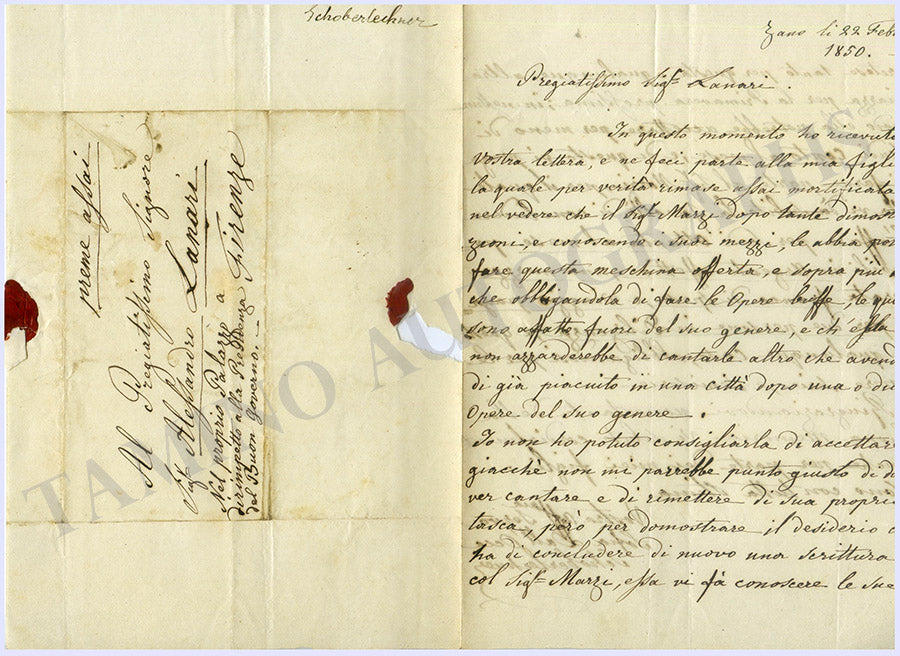 Schoberlechner
preme assai
Al Pregiatissimo Signore
Sigr Alessandro Lanari
Nel proprio Palazzo a Firenze
dirimpetto alla Presidenza
del Buon Governo.
Zano li 22 Feb
1850.
Pregiatissimo Sigr Lanari.
In questo momento ho ricevuto
vostra lettera, e ne feci parte alla mia figli
la quale per verità rimase assai mortificata
nel vedere che il Sigr Marzi dopo tante dimost
zioni, e conoscendo i suoi mezzi, le abbia po
fare questa meschina offerta, e sopra più
che obbligandola di fare le Opere buffe, le qu
sono affatto fuori del suo genere, e ch'essa
non azzarderebbe di cantarle altro che avend
di già piaciuto in una città dopo una o du
Opere del suo genere.
Io non ho potuto consigliarla di accettar
giacche non mi parrebbe punto giusto di d
ver cantare e di rimettere di sua propri
tasca, però per domostrare il desiderio c
ha di concludere di nuovo una scrittura
col Sigr Marzi, essa vi fà conoscere le sue
TAMINO AUTOGRAPHS